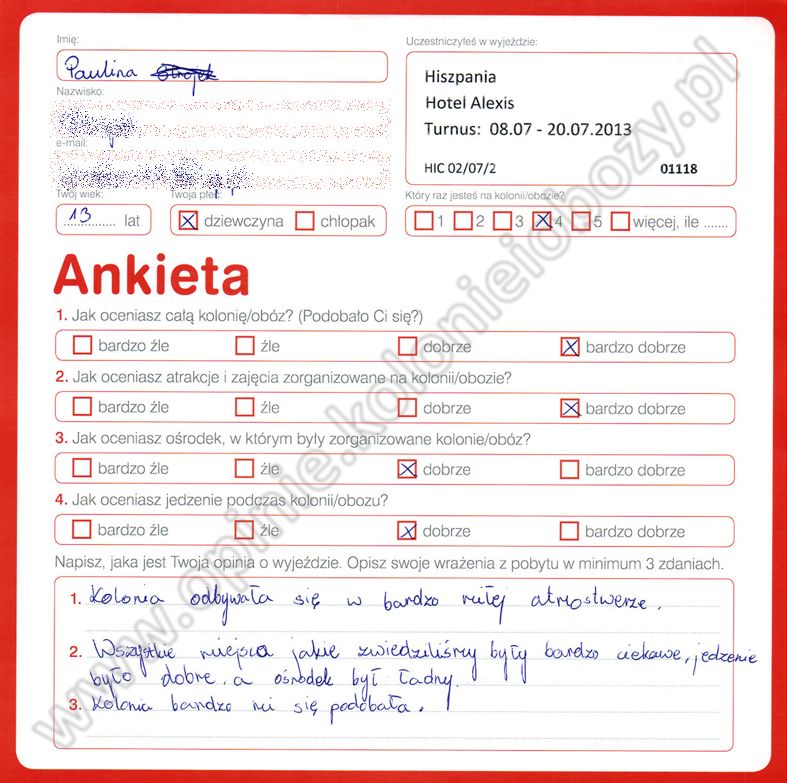 Imię:
Paulina
Uczestniczyłeś w wyjeździe:
Hiszpania
Hotel Alexis
Turnus: 08.07 - 20.07.2013
HIC 02/07/2 01118
Nazwisko:
e-mail:
Twój wiek:
13 lat
Twoja płeć:
dziewczyna chłopak
Który raz jesteś na kolonii/obozie?
1 2 3 4 5 więcej, ile .......
Ankieta
1. Jak oceniasz całą kolonię/obóz? (Podobało Ci się?)
bardzo źle źle dobrze bardzo dobrze
2. Jak oceniasz atrakcje i zajęcia zorganizowane na kolonii/obozie?
bardzo źle źle dobrze bardzo dobrze
3. Jak oceniasz ośrodek, w którym były zorganizowane kolonie/obóz?
bardzo źle źle dobrze bardzo dobrze
4. Jak oceniasz jedzenie podczas kolonii/obozu?
bardzo źle źle dobrze bardzo dobrze
Napisz, jaka jest Twoja opinia o wyjeździe. Opisz swoje wrażenia z pobytu w minimum 3 zdaniach.
1. Kolonia odbywała się w bardzo miłej atmostwerze.
2. Wszystkie miejsca jakie zwiedziliśmy były bardzo ciekawe, jedzenie
było dobre, a ośrodek był ładny.
3. Kolonia bardzo mi się podobała.
www.opinie.kolonieiobozy.pl